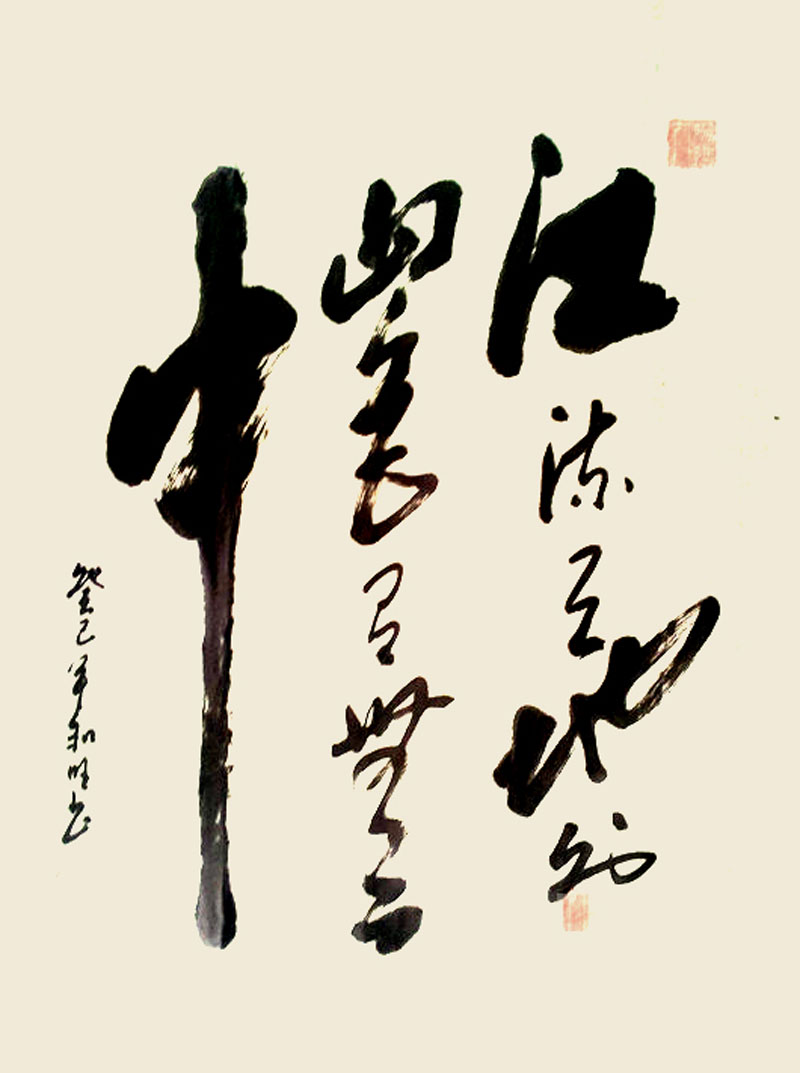 江流天地外
山色有無
中
癸巳年和旺书